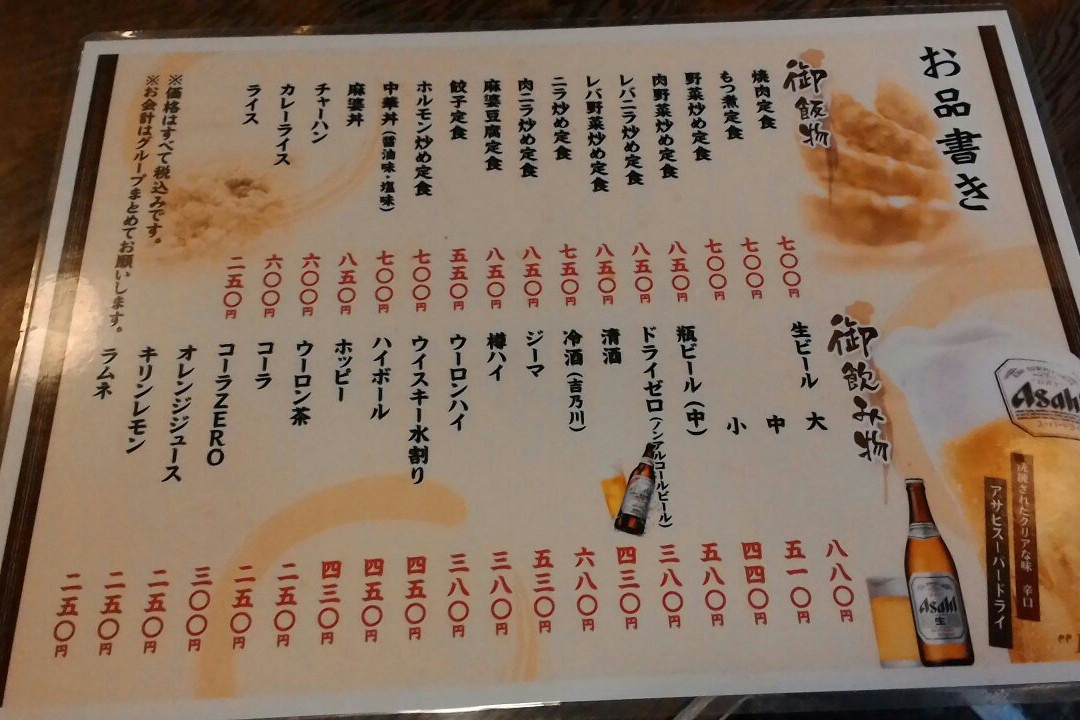 お品書き
御飯物
焼肉定食 七〇〇円
もつ煮定食 七〇〇円
野菜炒め定食 七〇〇円
肉野菜炒め定食 八五〇円
レバニラ炒め定食 八五〇円
レバ野菜炒め定食 八五〇円
ニラ炒め定食 七五〇円
肉ニラ炒め定食 八五〇円
麻婆豆腐定食 八五〇円
餃子定食 五五〇円
ホルモン炒め定食 七〇〇円
中華丼（醤油味・塩味） 七〇〇円
麻婆丼 八五〇円
チャーハン 六〇〇円
カレーライス 六〇〇円
ライス 二五〇円
※価格はすべて税込みです。
※お会計はグループまとめてお願いします。
御飲み物
生ビール 大 八八〇円
中 五一〇円
小 四四〇円
瓶ビール（中） 五八〇円
ドライゼロ（ノンアルコールビール） 三八〇円
清酒 四三〇円
冷酒（吉乃川） 六八〇円
ジーマ 五三〇円
樽ハイ 三八〇円
ウーロンハイ 三八〇円
ウイスキー水割り 四五〇円
ハイボール 四五〇円
ホッピー 四三〇円
ウーロン茶 二五〇円
コーラ 二五〇円
コーラZERO 三〇〇円
オレンジジュース 二五〇円
キリンレモン 二五〇円
ラムネ 二五〇円
Asahi
洗練されたクリアな味 辛口
アサヒスーパードライ
Asahi
生